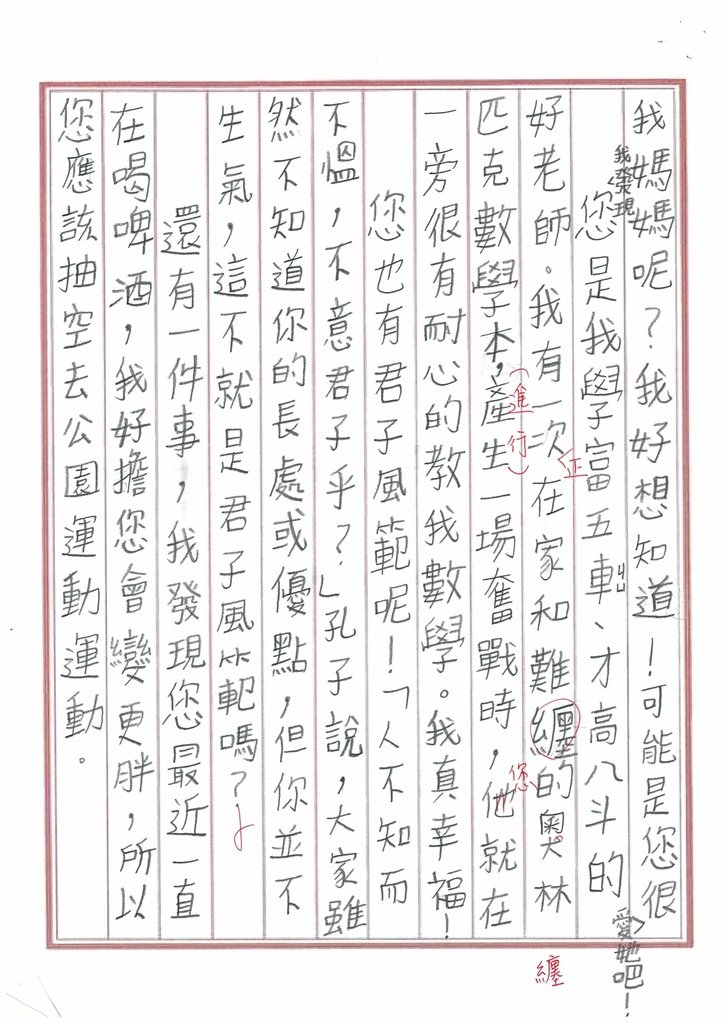 我媽媽呢？我好想知道！可能是您很愛她吧！
我發現您是我學富五車、才高八斗的
好老師。我有一次在家和難纏的奧林
匹克數學本，產生一場奮戰時，他就在
一旁很有耐心的教我數學。我真幸福！
您也有君子風範呢！「人不知而
不慍，不意君子乎？」孔子說，大家雖
然不知道你的長處或優點，但你並不
生氣，這不就是君子風範嗎？
還有一件事，我發現您最近一直
在喝啤酒，我好擔您會變更胖，所以
您應該抽空去公園運動運動。
正
ㄐㄩ
（進行）
您
纏